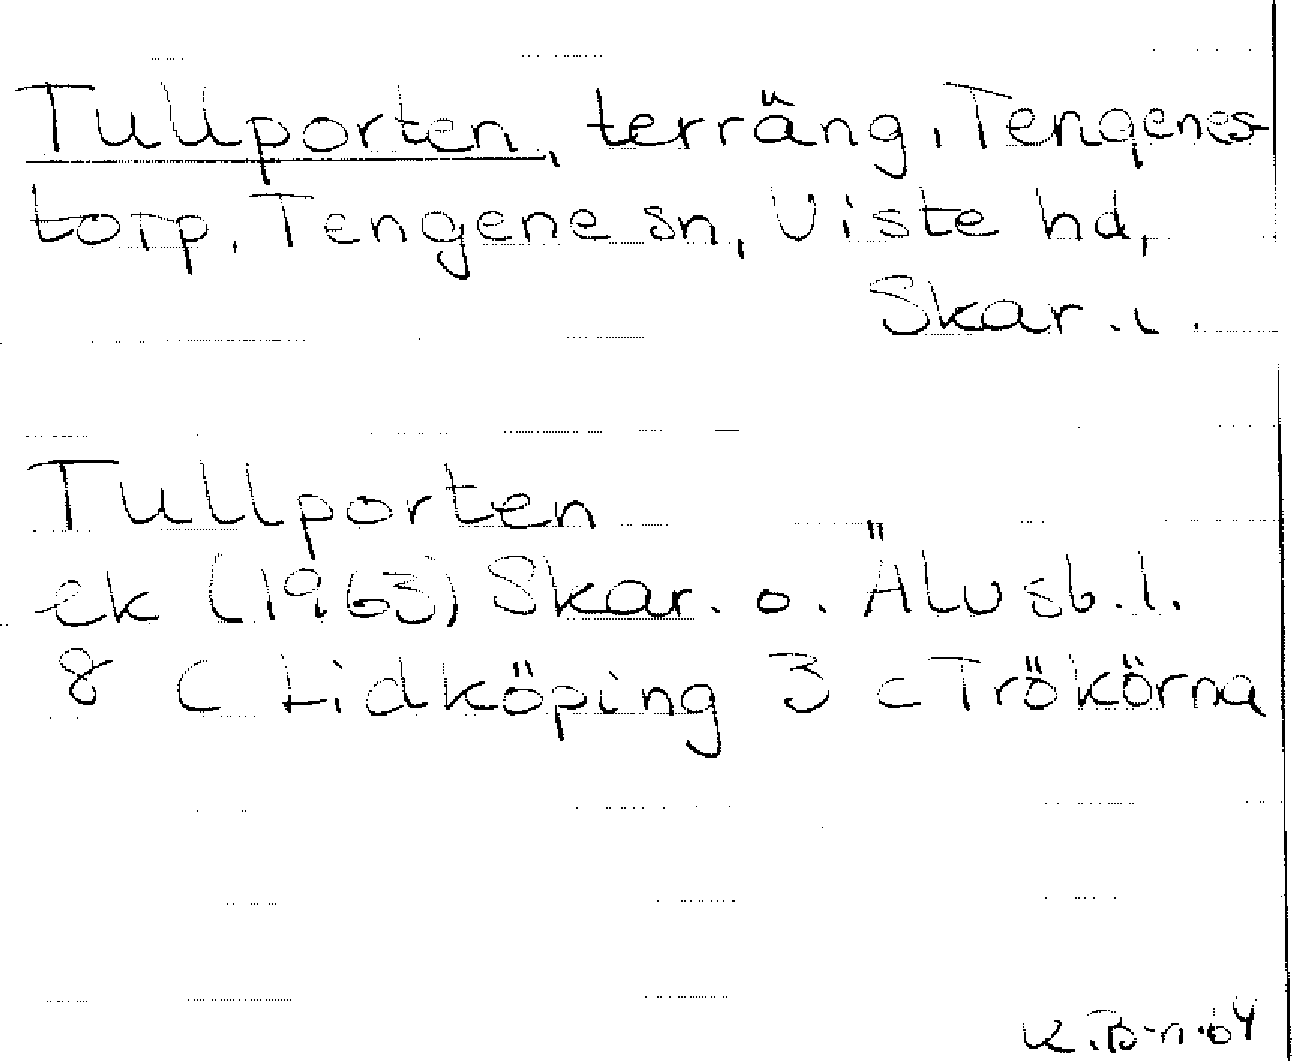 Tullporten, terräng, Tengenes-
torp, Tengene sn, Viste hd,
Skar. l.
Tullporten
ek (1963) Skar. o. Älvsb. l.
8 C Lidköping 3 c Trökörna
K. B-n. 64